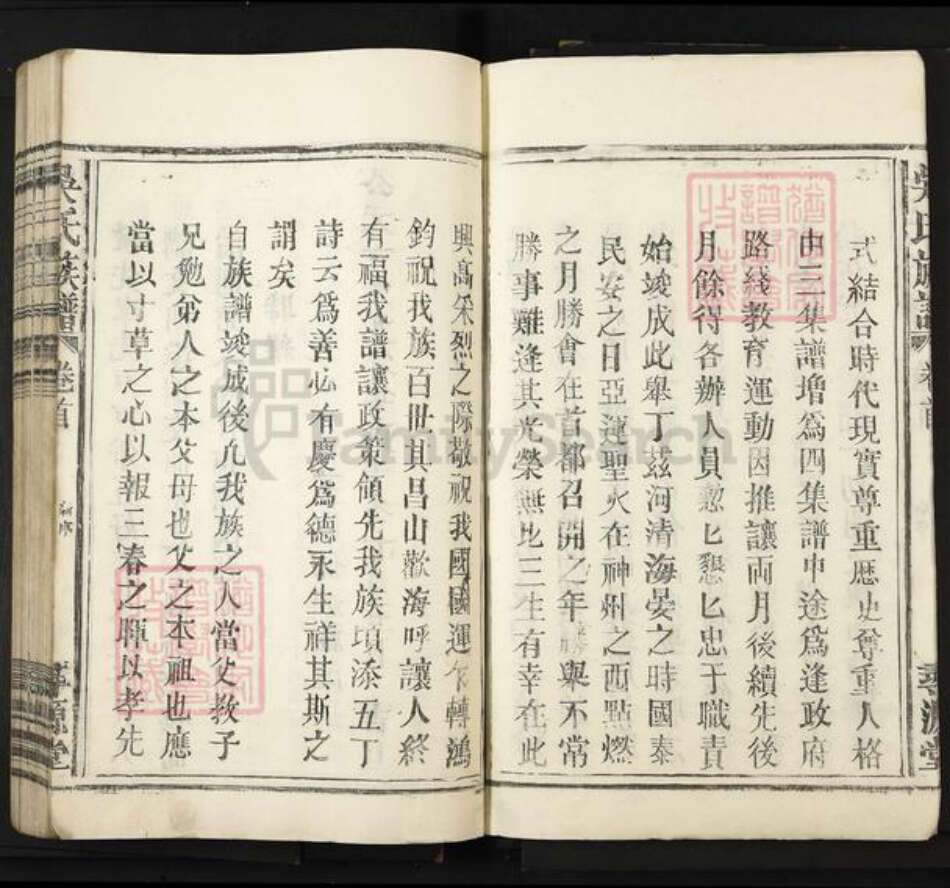 式結合時代現實尊重歷史尊重人格
由三集譜增爲四集譜中途爲逢政府
路綫教育運動因推讓両月後續先後
月餘得各辦人員懃匕懇匕忠于職責
始竣成此舉丁茲河清海晏之時國泰
民安之日亞運聖火在神州之西點燃
之月勝會在首都召開之年勝與不常
勝事難逢其光榮無比三生有幸在此
興高采烈之際敬祝我國國運乍轉鴻
鈞祝我族百世其昌山歡海呼讓人終
有福我譜讓政策領先我族頃添五丁
詩云爲善必有慶爲德永生祥其斯之
謂矣
自族譜竣成後凢我族之人當父教子
兄勉弟人之本父母也父之本祖也應
當以寸草之心以報三春之暉以孝先
吳氏族譜
卷首
源堂
FamilySearch